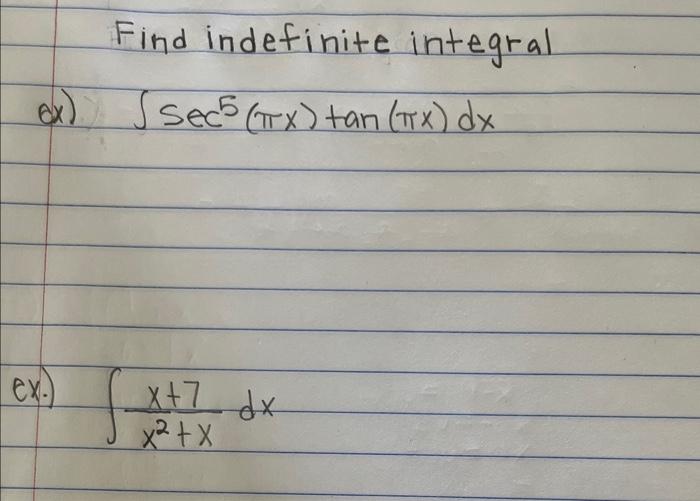 Find indefinite integral
ex) ∫ sec⁵(πx) tan(πx) dx
ex.) ∫ x+7 / x²+x dx